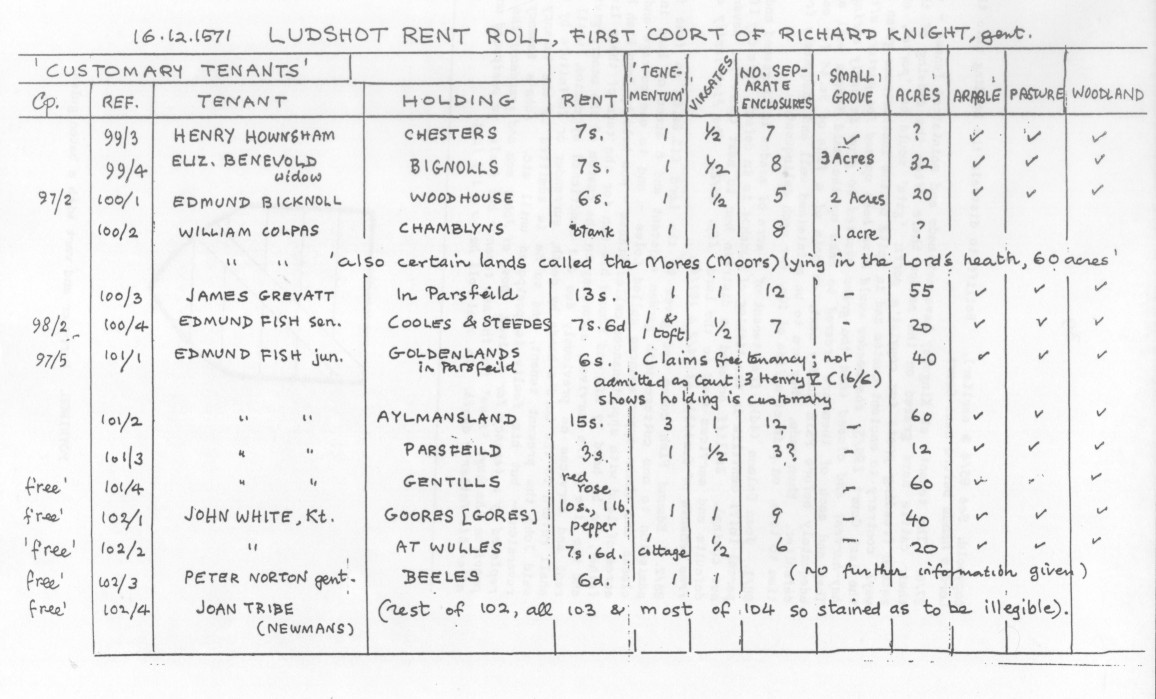 16.12.1571 LUDSHOT RENT ROLL, FIRST COURT OF RICHARD KNIGHT, gent.
'CUSTOMARY TENANTS' 'TENEMENTUM' VIRGATES NO. SEPARATE ENCLOSURES 'SMALL' GROVE
Cp. REF. TENANT HOLDING RENT ACRES ARABLE PASTURE WOODLAND
99/3 HENRY HOWNSHAM CHESTERS 7s. 1 ½ 7 ✓ ? ✓ ✓ ✓
99/4 ELIZ. BENEVOLD widow BIGNOLLS 7s. 1 ½ 8 3 Acres 32 ✓ ✓ ✓
97/2 100/1 EDMUND BICKNOLL WOODHOUSE 6s. 1 ½ 5 2 Acres 20 ✓ ✓ ✓
100/2 WILLIAM COLPAS CHAMBLYNS blank 1 1 8 1 acre ?
" " 'also certain lands called the Mores (Moors) lying in the Lord's heath, 60 acres'
100/3 JAMES GREVATT In Parsfeild 13s. 1 1 12 – 55 ✓ ✓ ✓
98/2 100/4 EDMUND FISH sen. COOLES & STEEDES 7s.6d 1 & 1 toft ½ 7 – 20 ✓ ✓ ✓
97/5 101/1 EDMUND FISH jun. GOLDENLANDS in Parsfeild 6s. Claims free tenancy; not 40 ✓ ✓ ✓
admitted as Court 3 Henry V (16/6)
shows holding is customary
101/2 " " AYLMANSLAND 15s. 3 1 12 – 60 ✓ ✓ ✓
101/3 " " PARSFEILD 3s. 1 ½ 3? – 12 ✓ ✓ ✓
free' 101/4 " " GENTILLS red rose – 60 ✓
free' 102/1 JOHN WHITE, Kt. GOORES [GORES] 10s., 1 lb. pepper 1 1 9 – 40 ✓ ✓ ✓
'free' 102/2 " AT WULLES 7s.6d. cottage ½ 6 – 20 ✓ ✓ ✓
free' 102/3 PETER NORTON gent. BEELES 6d. 1 1 (no further information given)
free' 102/4 JOAN TRIBE (rest of 102, all 103 & most of 104 so stained as to be illegible).
(NEWMANS)